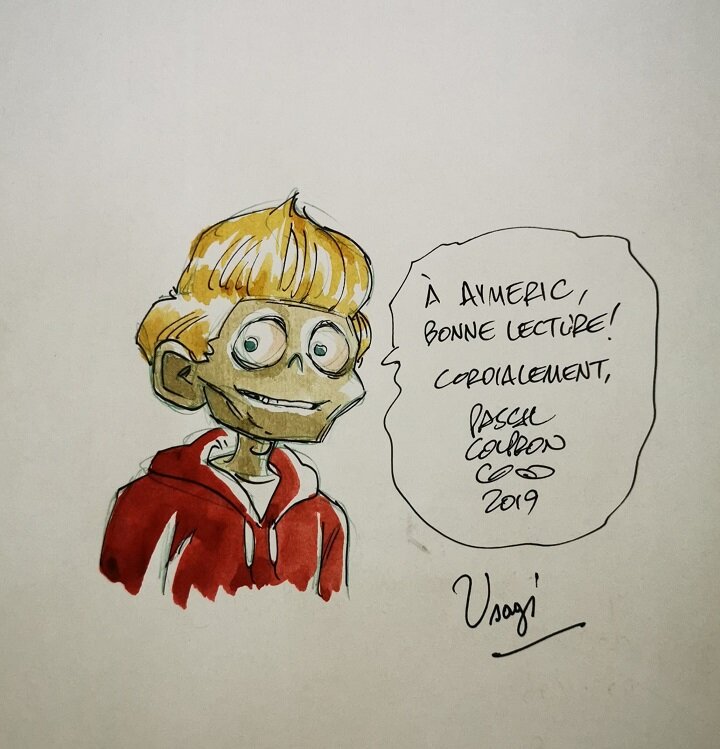 À AYMERIC,
BONNE LECTURE!
CORDIALEMENT,
PASCAL
COLPRON
2019
Usagi